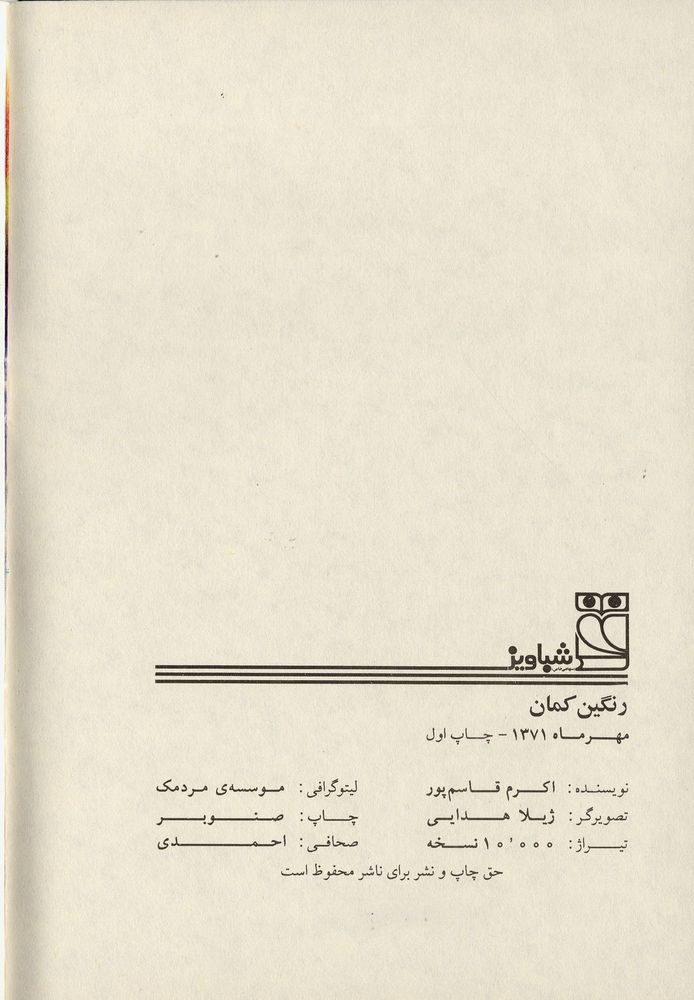 شباویز
رنگین کمان
مهرماه ۱۳۷۱ - چاپ اول
نویسنده: اکرم قاسم‌پور لیتوگرافی: موسسه‌ی مردمک
تصویرگر: ژیلا هدایی چاپ: صنوبر
تیراژ: ۱۰٬۰۰۰ نسخه صحافی: احمدی
حق چاپ و نشر برای ناشر محفوظ است